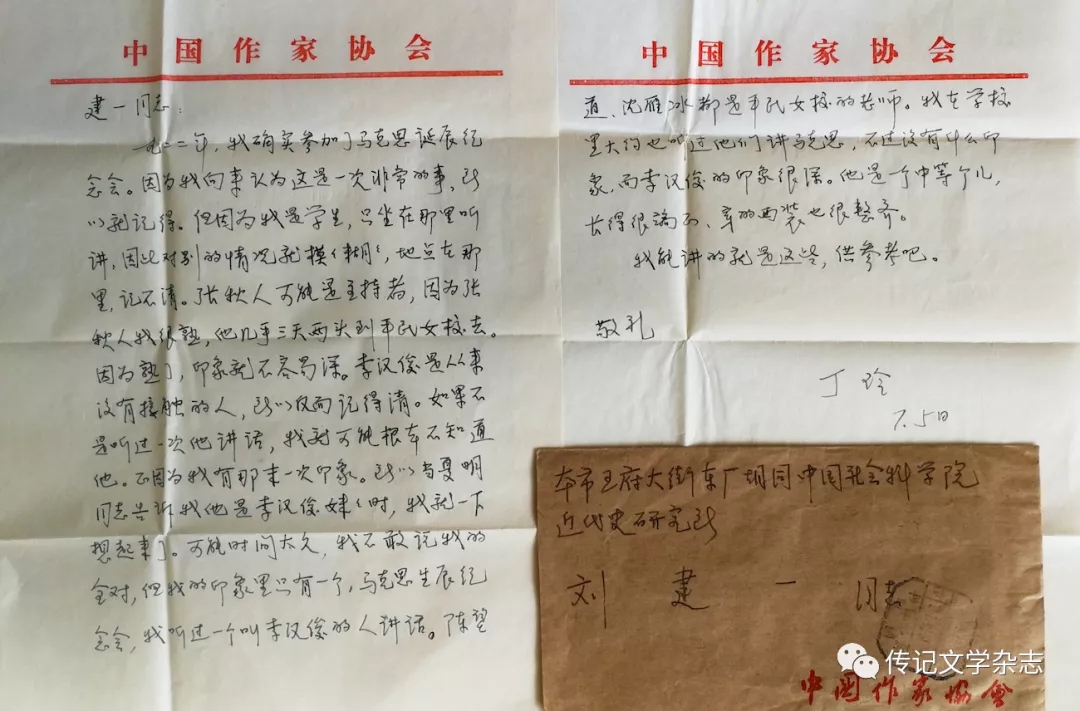 中国作家协会
建一同志：
一九二二年，我确实参加了马克思诞辰纪
念会。因为我向来认为这是一次非常的事，所
以就记得。但因为我是学生，只坐在那里听
讲，因此对别的情况就模模糊糊，地点在那
里，记不清。张秋人可能是主持者，因为张
秋人我很熟，他几乎三天两头到平民女校去。
因为熟了，印象就不容易深。李汉俊是从来
没有接触的人，所以反而记得清。如果不
是听过一次他讲话，我就可能根本不知道
他。正因为我有那末一次印象。所以当夏明
同志告诉我他是李汉俊妹妹时，我就一下
想起来了。可能时间太久，我不敢说我的
全对，但我的印象里只有一个，马克思生辰纪
念会，我听过一个叫李汉俊的人讲话。陈望
中国作家协会
道、沈雁冰都是平民女校的老师。我在学校
里大约也听过他们讲马克思，不过没有什么印
象，而李汉俊的印象很深。他是一个中等个儿，
长得很端正、穿的西装也很整齐。
我能讲的就是这些，供参考吧。
敬礼
丁玲
7.5日
本市王府大街东厂胡同中国社会科学院
近代史研究所
刘建一 同志
中国作家协会
传记文学杂志